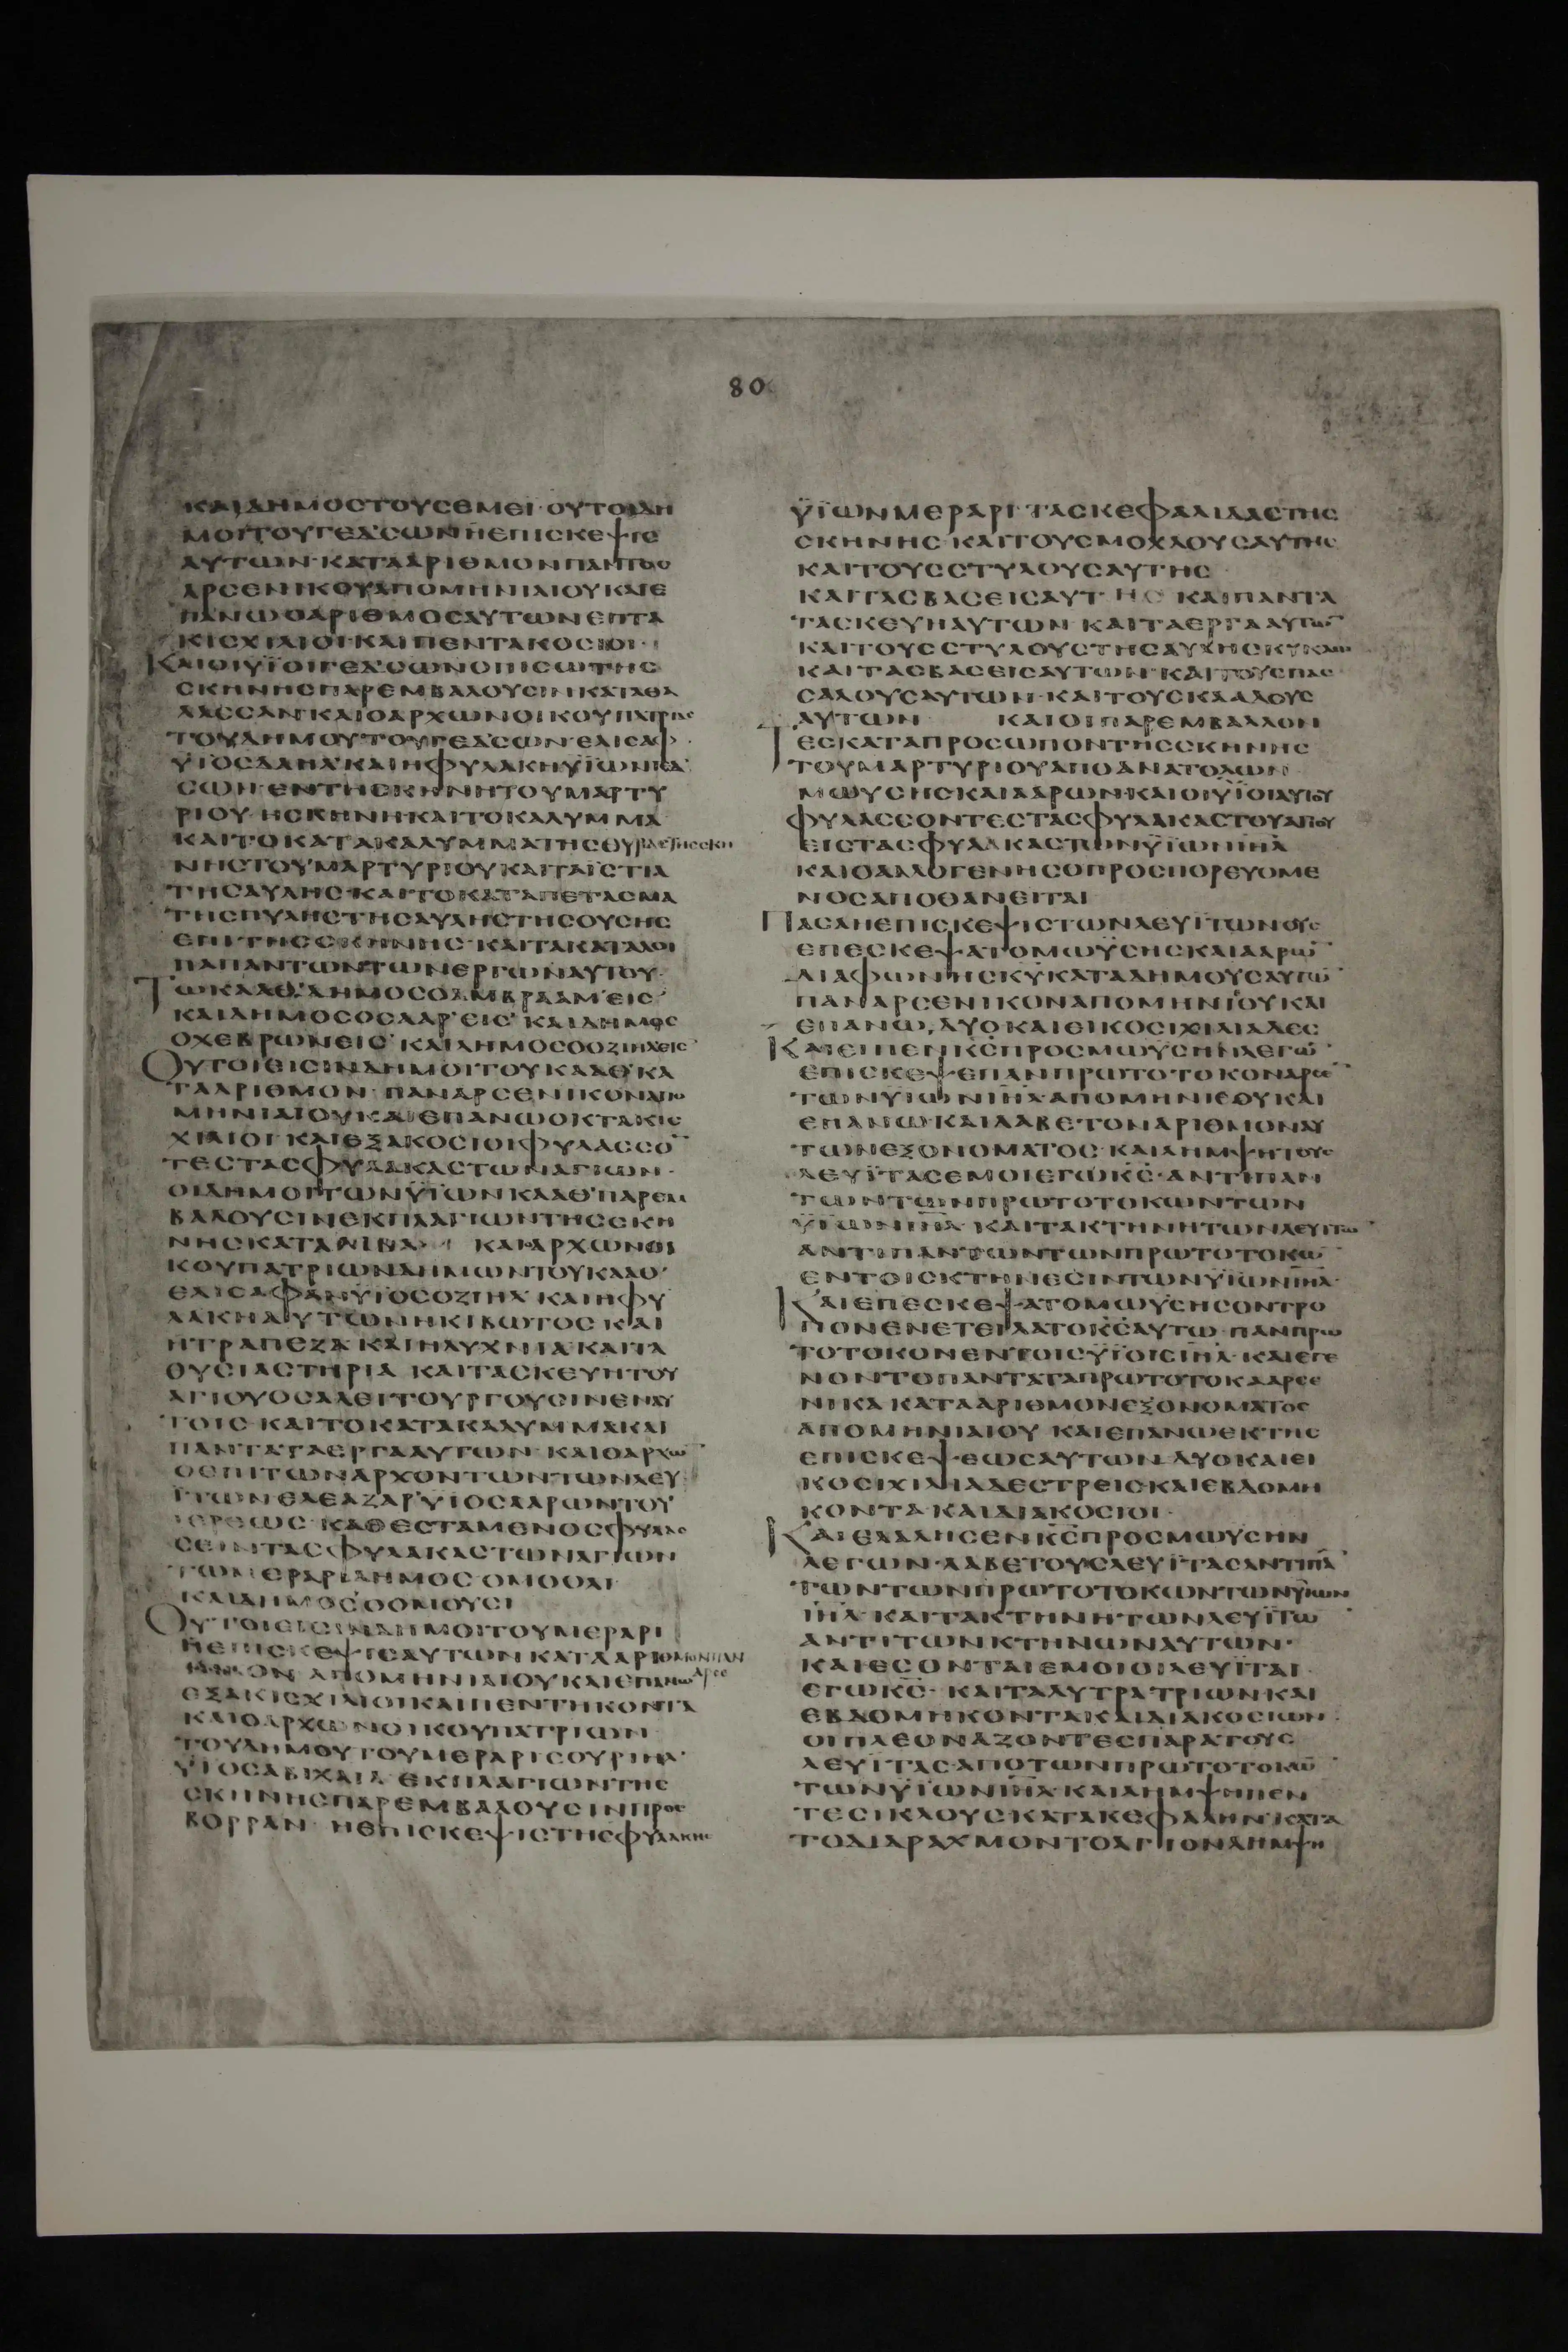 80
ΚΑΙΔΗΜΟCΤΟΥCΕΜΕΙ·ΟΥΤΟΙΔΗ
ΜΟΙΤΟΥΓΕΔCΩΝΗΕΠΙCΚΕΨΙC
ΑΥΤΩΝ·ΚΑΤΑΑΡΙΘΜΟΝΠΑΝΤΟC
ΑΡCΕΝΙΚΟΥΑΠΟΜΗΝΙΑΙΟΥΚΑΙΕ
ΠΑΝΩΟΑΡΙΘΜΟCΑΥΤΩΝΕΠΤΑ
ΚΙCΧΙΛΙΟΙ·ΚΑΙΠΕΝΤΑΚΟCΙΟΙ·
ΚΑΙΟΙΫΪΟΙΓΕΔCΩΝΟΠΙCΩΤΗC
CΚΗΝΗCΠΑΡΕΜΒΑΛΟΥCΙΝΚΑΤΑΘΑ
ΛΑCCΑΝ·ΚΑΙΟΑΡΧΩΝΟΙΚΟΥΠΑΤΡΙΑC
ΤΟΥΔΗΜΟΥΤΟΥΓΕΔCΩΝ·ΕΛΙCΑΦ·
ΫΙΟCΔΑΗΛ·ΚΑΙΗΦΥΛΑΚΗΫΪΩΝΓΕΔ
CΩΝ·ΕΝΤΗCΚΗΝΗΤΟΥΜΑΡΤΥ
ΡΙΟΥ·ΗCΚΗΝΗ·ΚΑΙΤΟΚΑΛΥΜΜΑ
ΚΑΙΤΟΚΑΤΑΚΑΛΥΜΜΑΤΗCΘΥΡΑCΤΗCCΚΗ
ΝΗCΤΟΥΜΑΡΤΥΡΙΟΥΚΑΙΤΑΪCΤΙΑ
ΤΗCΑΥΛΗC·ΚΑΙΤΟΚΑΤΑΠΕΤΑCΜΑ
ΤΗCΠΥΛΗCΤΗCΑΥΛΗCΤΗCΟΥCΗC
ΕΠΙΤΗCCΚΗΝΗC·ΚΑΙΤΑΚΑΤΑΛΟΙ
ΠΑΠΑΝΤΩΝΤΩΝΕΡΓΩΝΑΥΤΟΥ·
ΤΩΚΑΑΘ·ΔΗΜΟCΟΑΜΒΡΑΑΜ·ΕΙC·
ΚΑΙΔΗΜΟCΟCΑΑΡ·ΕΙC·ΚΑΙΔΗΜΟC
ΟΧΕΒΡΩΝΕΙC·ΚΑΙΔΗΜΟCΟΟΖΙΗΛΕΙC·
ΟΥΤΟΙΕΙCΙΝΔΗΜΟΙΤΟΥΚΑΑΘ·ΚΑ
ΤΑΑΡΙΘΜΟΝ·ΠΑΝΑΡCΕΝΙΚΟΝΑΠΟ
ΜΗΝΙΑΙΟΥΚΑΙΕΠΑΝΩΟΚΤΑΚΙC
ΧΙΛΙΟΙ·ΚΑΙΕΞΑΚΟCΙΟΙΦΥΛΑCCΟ̅
ΤΕCΤΑCΦΥΛΑΚΑCΤΩΝΑΓΙΩΝ·
ΟΙΔΗΜΟΙΤΩΝΫΪΩΝΚΑΑΘ·ΠΑΡΕΜ
ΒΑΛΟΥCΙΝΕΚΠΛΑΓΙΩΝΤΗCCΚΗ
ΝΗCΚΑΤΑΛΙΒΑ ΚΑΙΑΡΧΩΝΟΙ
ΚΟΥΠΑΤΡΙΩΝΔΗΜΩΝΤΟΥΚΑΑΘ·
ΕΛΙCΑΦΑΝΫΪΟCΟΖΙΗΛ·ΚΑΙΗΦΥ
ΛΑΚΗΑΥΤΩΝΗΚΙΒΩΤΟC·ΚΑΙ
ΗΤΡΑΠΕΖΑ·ΚΑΙΗΛΥΧΝΙΑ·ΚΑΙΤΑ
ΘΥCΙΑCΤΗΡΙΑ·ΚΑΙΤΑCΚΕΥΗΤΟΥ
ΑΓΙΟΥΟCΑΛΕΙΤΟΥΡΓΟΥCΙΝΕΝΑΥ
ΤΟΙC·ΚΑΙΤΟΚΑΤΑΚΑΛΥΜΜΑΚΑΙ
ΠΑΝΤΑΤΑΕΡΓΑΑΥΤΩΝ·ΚΑΙΟΑΡΧΩ̅
ΟΕΠΙΤΩΝΑΡΧΟΝΤΩΝΤΩΝΛΕΥ
ΪΤΩΝΕΛΕΑΖΑΡ·ΫΙΟCΑΑΡΩΝΤΟΥ
ΙΕΡΕΩC·ΚΑΘΕCΤΑΜΕΝΟCΦΥΛΑC
CΕΙΝΤΑCΦΥΛΑΚΑCΤΩΝΑΓΙΩΝ
ΤΩΜΕΡΑΡΙΔΗΜΟC·ΟΜΟΟΛΙ
ΚΑΙΔΗΜΟCΟΟΜΟΥCΙ
ΟΥΤΟΙΕΙCΙΝΔΗΜΟΙΤΟΥΜΕΡΑΡΙ
ΗΕΠΙCΚΕΨΙCΑΥΤΩΝΚΑΤΑΑΡΙΘΜΟΝΠΑΝ
ΑΡCΕ
ΝΙΚΟΝ ΑΠΟΜΗΝΙΑΙΟΥΚΑΙΕΠΑΝΩ
ΕΞΑΚΙCΧΙΛΙΟΙΚΑΙΠΕΝΤΗΚΟΝΤΑ
ΚΑΙΟΑΡΧΩΝΟΙΚΟΥΠΑΤΡΙΩΝ
ΤΟΥΔΗΜΟΥΤΟΥΜΕΡΑΡΙCΟΥΡΙΗΛ·
ΫΙΟCΑΒΙΧΑΙΛ·ΕΚΠΛΑΓΙΩΝΤΗC
CΚΗΝΗCΠΑΡΕΜΒΑΛΟΥCΙΝΠΡΟC
ΒΟΡΡΑΝ·ΗΕΠΙCΚΕΨΙCΤΗCΦΥΛΑΚΗC
ΫΪΩΝΜΕΡΑΡΙ·ΤΑCΚΕΦΑΛΙΔΑCΤΗC
CΚΗΝΗC·ΚΑΙΤΟΥCΜΟΧΛΟΥCΑΥΤΗC
ΚΑΙΤΟΥCCΤΥΛΟΥCΑΥΤΗC
ΚΑΙΤΑCΒΑCΕΙCΑΥΤΗC ΚΑΙΠΑΝΤΑ
ΤΑCΚΕΥΗΑΥΤΩΝ·ΚΑΙΤΑΕΡΓΑΑΥΤΩ̅
ΚΑΙΤΟΥCCΤΥΛΟΥCΤΗCΑΥΛΗCΚΥΚΛΩ
ΚΑΙΤΑCΒΑCΕΙCΑΥΤΩΝ·ΚΑΙΤΟΥCΠΑC
CΑΛΟΥCΑΥΤΩΝ·ΚΑΙΤΟΥCΚΑΛΛΟΥC
ΑΥΤΩΝ ΚΑΙΟΙΠΑΡΕΜΒΑΛΛΟΝ
ΤΕCΚΑΤΑΠΡΟCΩΠΟΝΤΗCCΚΗΝΗC
ΤΟΥΜΑΡΤΥΡΙΟΥΑΠΟΑΝΑΤΟΛΩΝ
ΜΩΥCΗCΚΑΙΑΑΡΩΝ·ΚΑΙΟΙΫΪΟΙΑΥΤΟΥ
ΦΥΛΑCCΟΝΤΕCΤΑCΦΥΛΑΚΑCΤΟΥΑΓΙΟΥ
ΕΙCΤΑCΦΥΛΑΚΑCΤΩΝΫΪΩΝΙΗ̅Λ
ΚΑΙΟΑΛΛΟΓΕΝΗCΟΠΡΟCΠΟΡΕΥΟΜΕ
ΝΟCΑΠΟΘΑΝΕΙΤΑΙ
ΠΑCΑΗΕΠΙCΚΕΨΙCΤΩΝΛΕΥΪΤΩΝΟΥC
ΕΠΕCΚΕΨΑΤΟΜΩΫCΗCΚΑΙΑΑΡΩ̅
ΔΙΑΦΩΝΗCΚΥ̅ΚΑΤΑΔΗΜΟΥCΑΥΤΩ̅
ΠΑΝΑΡCΕΝΙΚΟΝΑΠΟΜΗΝΙΟΥΚΑΙ
ΕΠΑΝΩ,ΔΥΟΚΑΙΕΙΚΟCΙΧΙΛΙΑΔΕC
ΚΑΙΕΙΠΕΝΚ̅C̅ΠΡΟCΜΩΫCΗΝΛΕΓΩ̅
ΕΠΙCΚΕΨΕΠΑΝΠΡΩΤΟΤΟΚΟΝΑΡCΕ
ΤΩΝΫΪΩΝΙΗ̅Λ·ΑΠΟΜΗΝΙΕΟΥΚΑΙ
ΕΠΑΝΩ·ΚΑΙΛΑΒΕΤΟΝΑΡΙΘΜΟΝΑΥ
ΤΩΝΕΞΟΝΟΜΑΤΟC·ΚΑΙΛΗΜΨΗΤΟΥC
ΛΕΥΪΤΑCΕΜΟΙΕΓΩΚ̅C̅·ΑΝΤΙΠΑΝ
ΤΩΝΤΩΝΠΡΩΤΟΤΟΚΩΝΤΩΝ
ΫΪΩΝΙΗ̅Λ·ΚΑΙΤΑΚΤΗΝΗΤΩΝΛΕΥΙΤΩ̅
ΑΝΤΙΠΑΝΤΩΝΤΩΝΠΡΩΤΟΤΟΚΩ̅
ΕΝΤΟΙCΚΤΗΝΕCΙΝΤΩΝΫΪΩΝΙΗ̅Λ·
ΚΑΙΕΠΕCΚΕΨΑΤΟΜΩΫCΗCΟΝΤΡΟ
ΠΟΝΕΝΕΤΕΙΛΑΤΟΚ̅C̅ΑΥΤΩ·ΠΑΝΠΡΩ
ΤΟΤΟΚΟΝΕΝΤΟΙCΫΪΟΙCΙΗ̅Λ·ΚΑΙΕΓΕ
ΝΟΝΤΟΠΑΝΤΑΤΑΠΡΩΤΟΤΟΚΑΑΡCΕ
ΝΙΚΑ·ΚΑΤΑΑΡΙΘΜΟΝΕΞΟΝΟΜΑΤΟC
ΑΠΟΜΗΝΙΑΙΟΥ·ΚΑΙΕΠΑΝΩΕΚΤΗC
ΕΠΙCΚΕΨΕΩCΑΥΤΩΝ·ΔΥΟΚΑΙΕΙ
ΚΟCΙΧΙΛΙΑΔΕCΤΡΕΙCΚΑΙΕΒΔΟΜΗ
ΚΟΝΤΑ·ΚΑΙΔΙΑΚΟCΙΟΙ·
ΚΑΙΕΛΑΛΗCΕΝΚ̅C̅ΠΡΟCΜΩΥCΗΝ
ΛΕΓΩΝ·ΛΑΒΕΤΟΥCΛΕΥΪΤΑCΑΝΤΙΠΑ̅
ΤΩΝΤΩΝΠΡΩΤΟΤΟΚΩΝΤΩΝΫΙΩΝ
ΙΗ̅Λ·ΚΑΙΤΑΚΤΗΝΗ·ΤΩΝΛΕΥΪΤΩ̅
ΑΝΤΙΤΩΝΚΤΗΝΩΝΑΥΤΩΝ·
ΚΑΙΕCΟΝΤΑΙΕΜΟΙΟΙΛΕΥΪΤΑΙ·
ΕΓΩΚ̅C̅·ΚΑΙΤΑΛΥΤΡΑΤΡΙΩΝΚΑΙ
ΕΒΔΟΜΗΚΟΝΤΑΚΑΙΔΙΑΚΟCΙΩΝ·
ΟΙΠΛΕΟΝΑΖΟΝΤΕCΠΑΡΑΤΟΥC
ΛΕΥΪΤΑC·ΑΠΟΤΩΝΠΡΩΤΟΤΟΚΩ̅
ΤΩΝΫΪΩΝΙΗ̅Λ·ΚΑΙΛΗΜΨΗΠΕΝ
ΤΕCΙΚΛΟΥCΚΑΤΑΚΕΦΑΛΗΝ·ΚΑΤΑ
ΤΟΔΙΔΡΑΧΜΟΝΤΟΑΓΙΟΝΛΗΜΨΗ